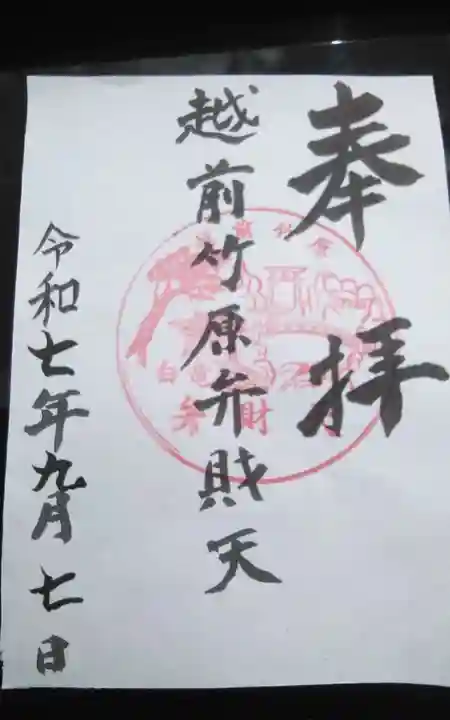 奉拝
越前竹原弁財天
令和七年九月七日
弁財